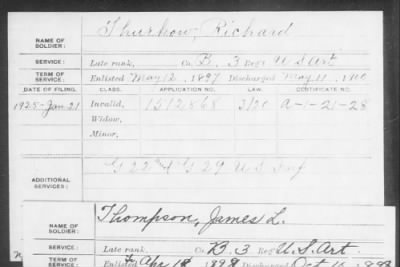 NAME OF SOLDIER: Thurkow, Richard
SERVICE: Late rank, Co. B. 3 Reg't U S Art
TERM OF SERVICE: Enlisted May 12, 1897 Discharged May 11, 1900
DATE OF FILING. CLASS. APPLICATION NO. LAW. CERTIFICATE NO.
1928-Jan-21 Invalid, 1512868 3/20 A-1-21-28
Widow,
Minor,
G 22nd & G 29 U S Inf
ADDITIONAL SERVICES:
NAME OF SOLDIER: Thompson, James L.
SERVICE: Late rank, Co. B. 3 Reg't U.S. Art.
TERM OF Enlisted Apr 18 1898 Discharged Oct